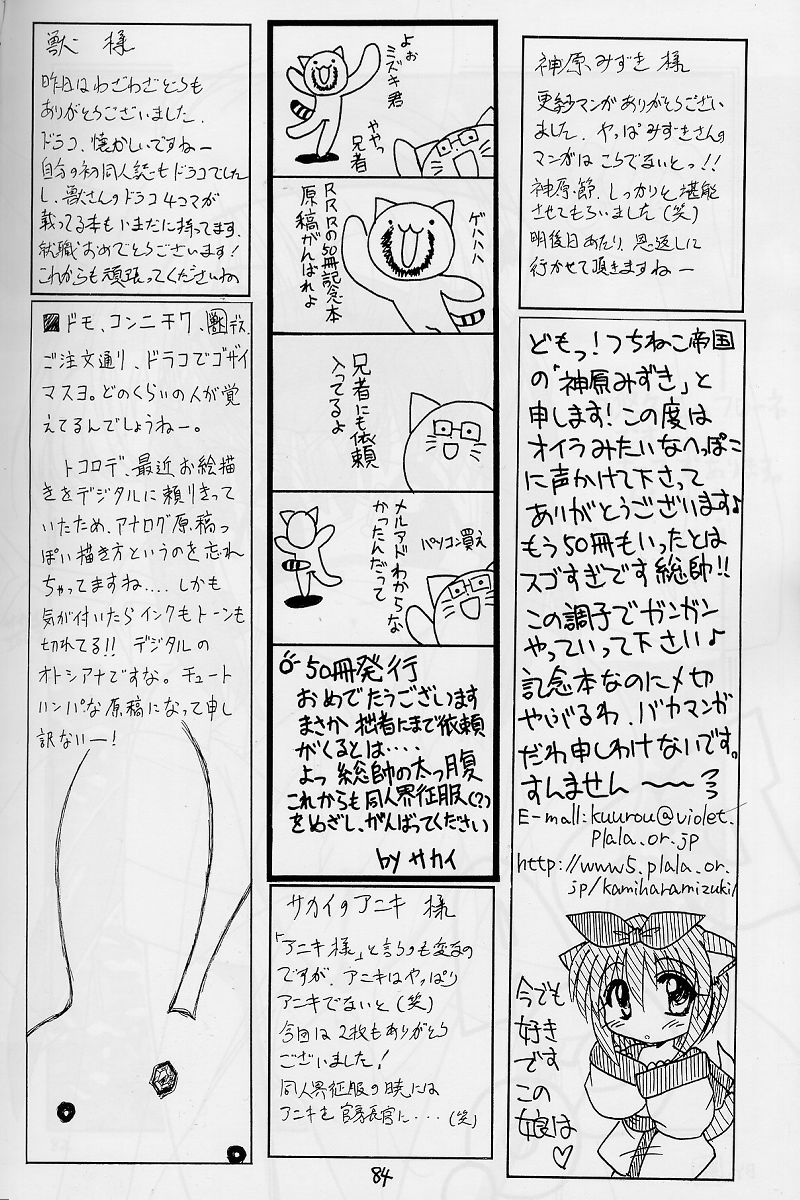 神原みずき 様
更紗マンガありがとうござい
ました。やっぱみずきさんの
マンガはこうでないとっ!!
神原節、しっかりと堪能
させてもらいました(笑)
明後日あたり、恩返しに
行かせて頂きますねー
どもっ!つちねこ帝国
の「神原みずき」と
申します!この度は
オイラみたいなへっぽこ
に声かけて下さって
ありがとうございます♪
もう50冊もいったとは
スゴすぎです総帥!!
この調子でガンガン
やっていって下さい♪
記念本なのに〆切
やぶるわ、バカマンガ
だわ申しわけないです。
すんません〜〜
E-mall:kuurou@violet.
plala.or.jp
http://www5.plala.or.
jp/kamiharamizuki/
今でも
好き
です
この
娘は♡
よぉ
ミズキ君
ややっ
兄者
ゲハハハ
RRRの50冊記念本
原稿がんばれよ
兄者にも依頼
入ってるよ
メルアドわからな
かったんだって
パソコン買え
50冊発行
おめでたうございます
まさか拙者にまで依頼
がくるとは‥‥
よっ総帥の太っ腹
これからも同人界征服(?)
をめざし、がんばってください
by サカイ
サカイのアニキ 様
「アニキ様」と言うのも変なの
ですが、アニキはやっぱり
アニキでないと(笑)
今回は2枚もありがとう
ございました!
同人界征服の暁には
アニキを官房長官に・・・(笑)
獣 様
昨日はわざわざどうも
ありがとうございました。
ドラコ、懐かしいですねー
自分の初同人誌もドラコでした
し、獣さんのドラコ4コマが
載ってる本もいまだに持ってます。
就職おめでとうございます!
これからも頑張ってくださいね
ドモ、コンニチワ、獣デス。
ご注文通り、ドラコでゴザイ
マスヨ。どのくらいの人が覚
えてるんでしょうねー。
トコロデ、最近お絵描
きをデジタルに頼りきって
いたため、アナログ原稿っ
ぽい描き方というのを忘れ
ちゃってますね.... しかも
気が付いたらインクもトーンも
切れてる!! デジタルの
オトシアナですな。チュート
ハンパな原稿になって申し
訳ないー!
84